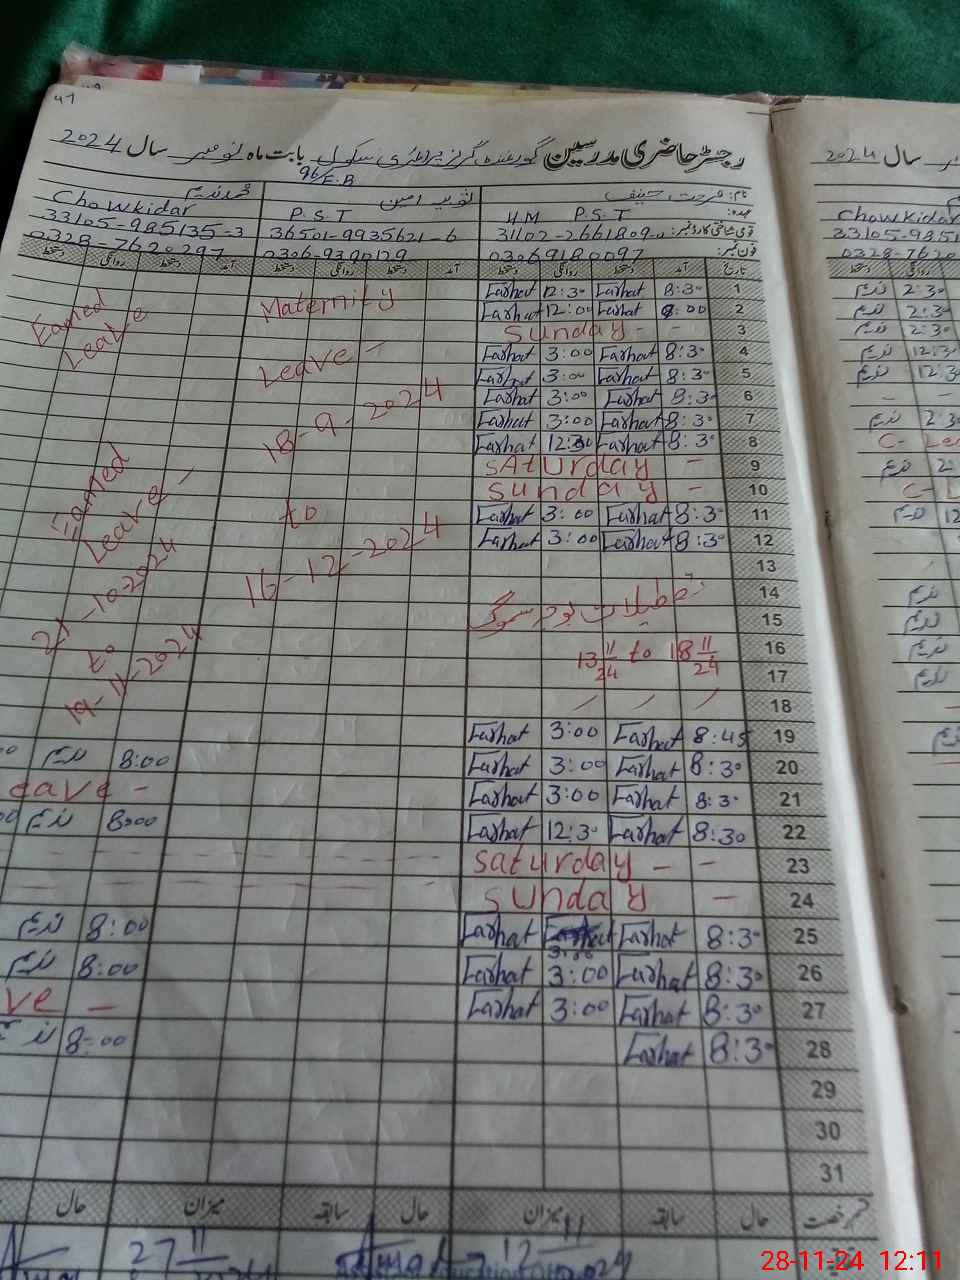 47
رجسٹر حاضری مدرسین گورنمنٹ گرلز پرائمری سکول 96/E.B بابت ماہ نومبر سال 2024
نام: فرحت حنیف
ثوبیہ امین
محمد ندیم
عہدہ: H.M P.S.T
P.S.T
Chowkidar
قومی شناختی کارڈ نمبر:
36501-9935621-6
33105-985135-3
فون نمبر: 03069180097
0306-9390129
0328-7620297
تاریخ آمد دستخط روانگی دستخط آمد دستخط روانگی دستخط آمد دستخط روانگی دستخط
1 8:30 Farhat 12:30 Farhat
2 8:00 Farhat 12:00 Farhat
3 Sunday - -
4 8:30 Farhat 3:00 Farhat
5 8:30 Farhat 3:00 Farhat
6 8:30 Farhat 3:00 Farhat
7 8:30 Farhat 3:00 Farhat
8 8:30 Farhat 12:30 Farhat
9 Saturday -
10 Sunday -
11 8:30 Farhat 3:00 Farhat
12 8:30 Farhat 3:00 Farhat
13
14 تعطیلات بوجہ سموگ
15
16 13 11/24 to 18 11/24
17
18
19 8:45 Farhat 3:00 Farhat
20 8:30 Farhat 3:00 Farhat
21 8:30 Farhat 3:00 Farhat
22 8:30 Farhat 12:30 Farhat
23 Saturday - -
24 Sunday -
25 8:30 Farhat 3:00 Farhat
26 8:30 Farhat 3:00 Farhat
27 8:30 Farhat 3:00 Farhat
28 8:30 Farhat
29
30
31
Maternity
Leave -
18-9-2024
to
16-12-2024
Earned
Leave
Earned
Leave -
21-10-2024
to
19-11-2024
8:00 ندیم
eave -
8:00 ندیم
8:00 ندیم
8:00 ندیم
ve -
8:00 ندیم
حال سابقہ میزان حال سابقہ میزان حال
27 11
12 11
سال 2024
Chowkidar
33105-9851
0328-7620
دستخط روانگی
ندیم 2:30
ندیم 2:30
ندیم 2:30
ندیم 12:3
ندیم 12:3
- -
ندیم 2:3
C- Lea
ندیم 2:
C- L
ندیم 12
ندیم
ندیم
ندیم
ندیم
ندیم
28-11-24 12:11